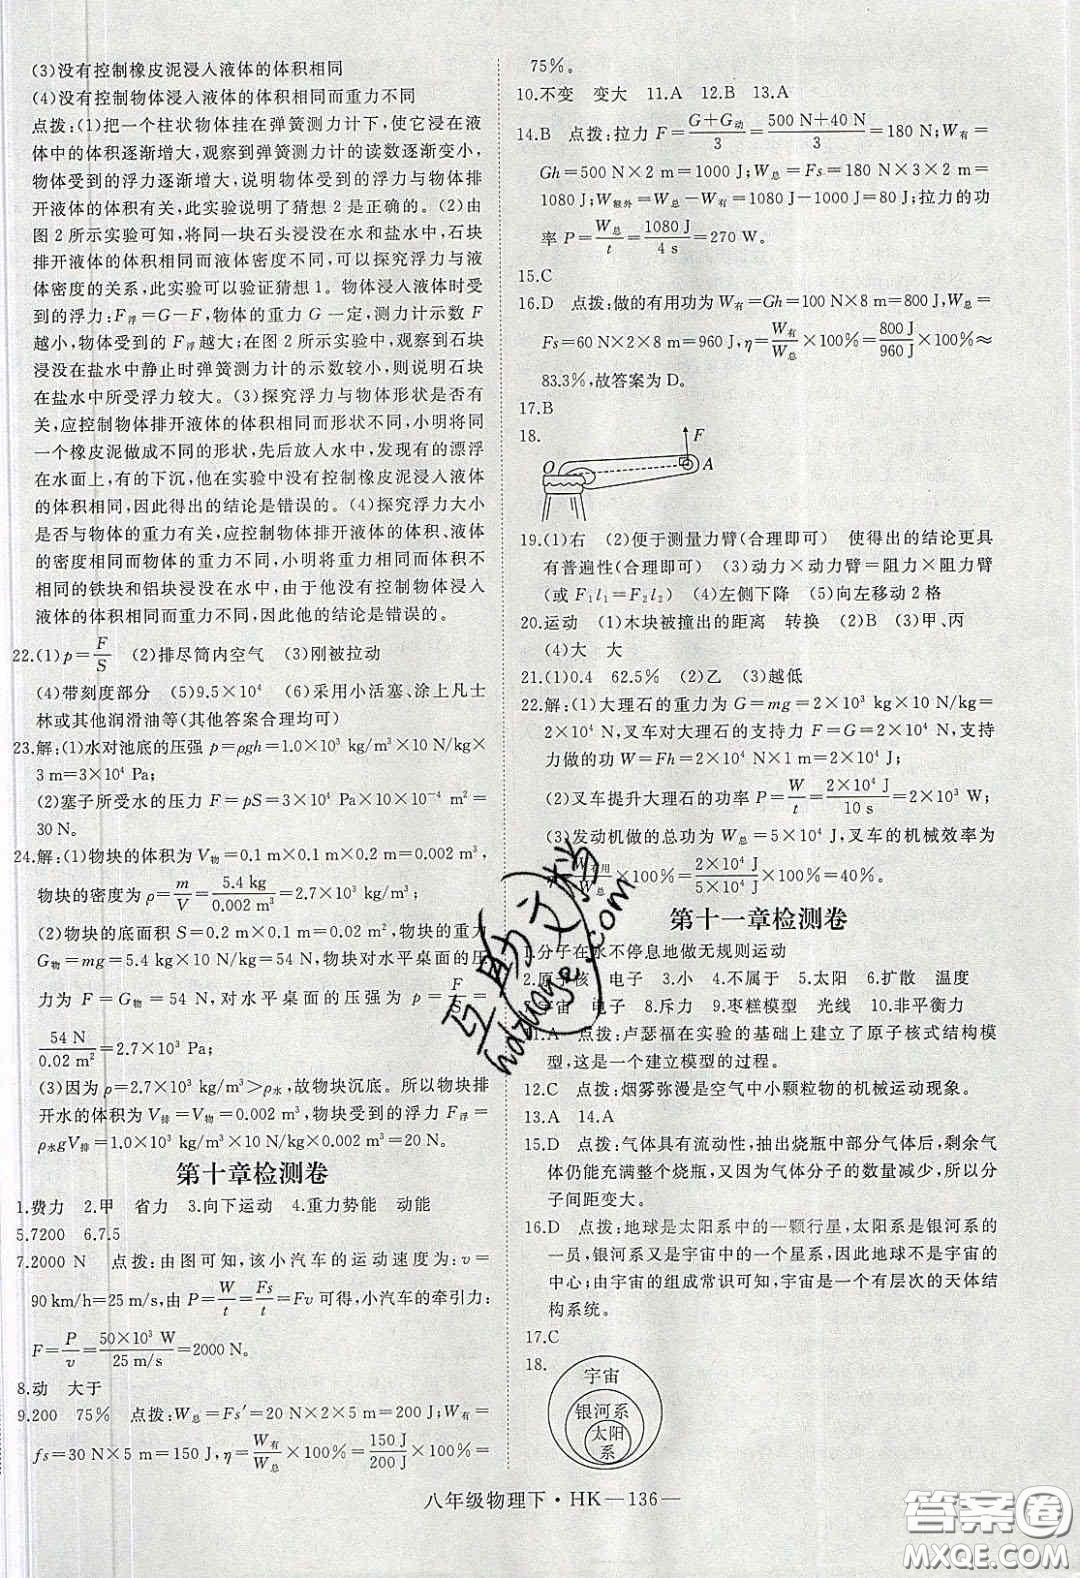 (3)没有控制橡皮泥浸入液体的体积相同
(4)没有控制物体浸入液体的体积相同而重力不同
点拨:(1)把一个柱状物体挂在弹簧测力计下,使它浸在液
体中的体积逐渐增大,观察到弹簧测力计的读数逐渐变小,
物体受到的浮力逐渐增大,说明物体受到的浮力与物体排
开液体的体积有关,此实验说明了猜想 2 是正确的。(2)由
图 2 所示实验可知,将同一块石头浸没在水和盐水中,石块
排开液体的体积相同而液体密度不同,可以探究浮力与液体
密度的关系,此实验可以验证猜想 1。物体浸入液体时受
到的浮力:F浮=G-F,物体的重力 G 一定,测力计示数 F
越小,物体受到的 F浮越大;在图 2 所示实验中,看到石块
浸没在盐水中静止时弹簧测力计的示数较小,则说明石块
在盐水中所受浮力较大。(3)探究浮力与物体形状是否有
关,应控制物体排开液体的体积相同而形状不同,小明将同
一个橡皮泥做成不同的形状,先后放入水中,发现有的漂浮
在水面上,有的下沉,他在实验中没有控制橡皮泥浸入液体
的体积相同,因此得出的结论是错误的。(4)探究浮力大小
是否与物体的重力有关,应控制物体排开液体的体积、液体
的密度相同而物体的重力不同,小明将重力不同而体积不
相同的铁块和铝块浸没在水中,由于他没有控制物体浸入
液体的体积相同而重力不同,因此他的结论是错误的。
22.(1)p=F/S (2)排尽筒内空气 (3)刚被拉动
(4)带刻度部分 (5)9.5×10⁴ (6)采用小活塞、涂上凡士
林或其他润滑油等(其他答案合理均可)
23.解:(1)水对池底的压强 p=ρgh=1.0×10³ kg/m³×10 N/kg×
3 m=3×10⁴ Pa;
(2)塞子所受水的压力 F=pS=3×10⁴ Pa×10×10⁻⁴ m²=
30 N。
24.解:(1)物块的体积为 V物=0.1 m×0.1 m×0.2 m=0.002 m³,
物块的密度为 ρ=m/V=5.4 kg/0.002 m³=2.7×10³ kg/m³;
(2)物块的底面积 S=0.2 m×0.1 m=0.02 m²,物块的重力
G物=mg=5.4 kg×10 N/kg=54 N,物块对水平桌面的压
力为 F=G物=54 N,对水平桌面的压强为 p=F/S=
54 N/0.02 m²=2.7×10³ Pa;
(3)因为 ρ=2.7×10³ kg/m³>ρ水,故物块沉底。所以物块排
开水的体积为 V排=V物=0.002 m³,物块受到的浮力 F浮=
ρ水gV排=1.0×10³ kg/m³×10 N/kg×0.002 m³=20 N。
第十章检测卷
1.费力 2.甲 省力 3.向下运动 4.重力势能 动能
5.7200 6.7.5
7.2000 N 点拨:由图可知,该小汽车的运动速度为:v=
90 km/h=25 m/s,由 P=W/t=Fs/t=Fv 可得,小汽车的牵引力:
F=P/v=50×10³ W/25 m/s=2000 N。
8.动 大于
9.200 75% 点拨:W总=Fs′=20 N×2×5 m=200 J;W有=
fs=30 N×5 m=150 J,η=W有/W总×100%=150 J/200 J×100%=
75%。
10.不变 变大 11.A 12.B 13.A
14.B 点拨:拉力 F=G+G动/3=500 N+40 N/3=180 N;W有=
Gh=500 N×2 m=1000 J;W总=Fs=180 N×3×2 m=
1080 J;W额外=W总-W有=1080 J-1000 J=80 J;拉力的功
率 P=W总/t=1080 J/4 s=270 W。
15.C
16.D 点拨:做的有用功为 W有=Gh=100 N×8 m=800 J,W总=
Fs=60 N×2×8 m=960 J,η=W有/W总×100%=800 J/960 J×100%≈
83.3%,故答案为 D。
17.B
18.
F
O
A
19.(1)右 (2)便于测量力臂(合理即可) 使得出的结论更具
有普遍性(合理即可) (3)动力×动力臂=阻力×阻力臂
(或 F₁l₁=F₂l₂) (4)左侧下降 (5)向左移动 2 格
20.运动 (1)木块被撞出的距离 转换 (2)B (3)甲、丙
(4)大 大
21.(1)0.4 62.5% (2)乙 (3)越低
22.解:(1)大理石的重力为 G=mg=2×10³ kg×10 N/kg=
2×10⁴ N,叉车对大理石的支持力 F=G=2×10⁴ N,支持
力做的功 W=Fh=2×10⁴ N×1 m=2×10⁴ J;
(2)叉车提升大理石的功率 P=W/t=2×10⁴ J/10 s=2×10³ W;
(3)发动机做的总功为 W总=5×10⁴ J,叉车的机械效率为
W有用/W总×100%=2×10⁴ J/5×10⁴ J×100%=40%。
第十一章检测卷
1.分子在永不停息地做无规则运动
2.原子核 电子 3.小 4.不属于 5.太阳 6.扩散 温度
宇宙 电子 8.斥力 9.枣糕模型 光线 10.非平衡力
11.A 点拨:卢瑟福在实验的基础上建立了原子核式结构模
型,这是一个建立模型的过程。
12.C 点拨:烟雾弥漫是空气中小颗粒物的机械运动现象。
13.A 14.A
15.D 点拨:气体具有流动性,抽出烧瓶中部分气体后,剩余气
体仍能充满整个烧瓶,这是因为气体分子的数量减少,所以分
子间距变大。
16.D 点拨:地球是太阳系中的一颗行星,太阳系是银河系中
的一员,银河系又是宇宙中的一个星系,因此地球不是宇宙的
中心;由宇宙的组成常识可知,宇宙是一个有层次的天体结
构系统。
17.C
18.
宇宙
银河系
太阳
系
八年级物理下·HK—136—
互助文档
hdzuoye.com
答案圈
MXQE.COM